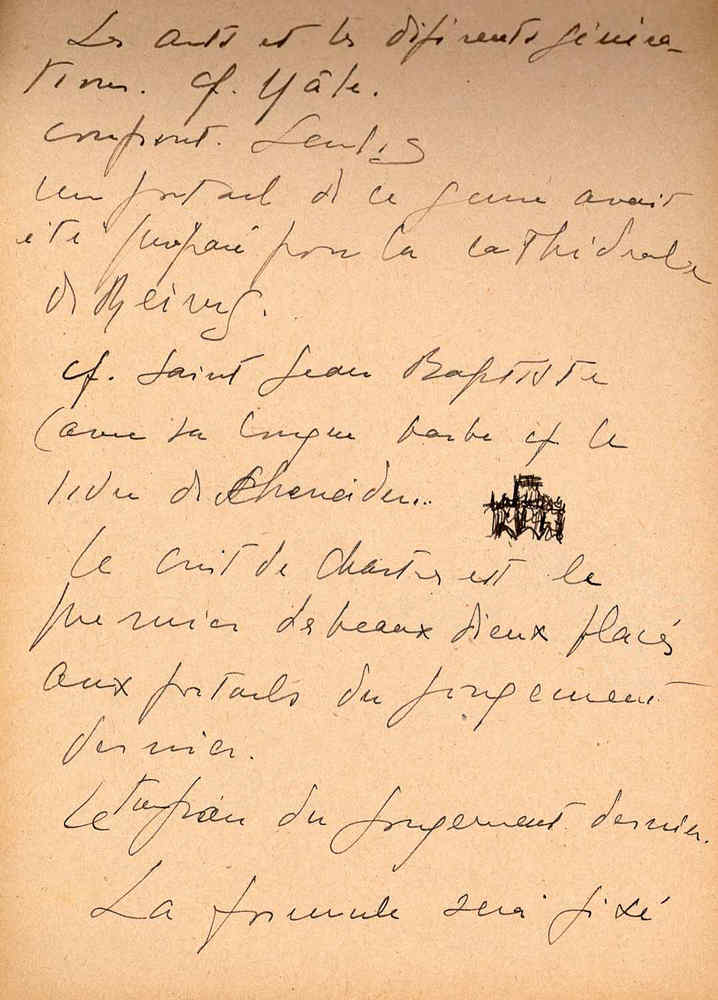 Les arts et les différents généra-
tions. cf. Yale.
confront. Senlis
un portail de ce genre avait
été préparé pour la cathédrale
de Reims.
cf. Saint Jean Baptiste
(avec sa longue barbe cf le
livre de
Le crist de Chartres est le
premier des beaux dieux placés
aux portails du jougement
dernier.
Le tympan du jougement dernier.
La formule sera fixé